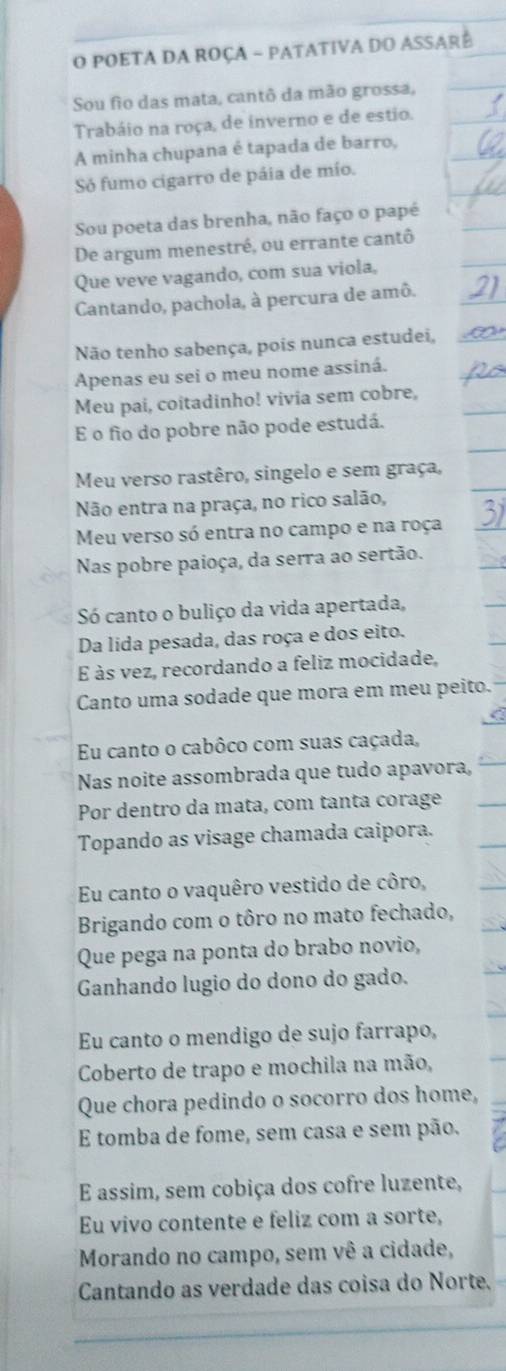 O POETA DA ROÇA - PATATIVA DO ASSARÉ
Sou fio das mata, cantô da mão grossa,
Trabáio na roça, de inverno e de estio.
A minha chupana é tapada de barro,
Só fumo cigarro de páia de mío.
Sou poeta das brenha, não faço o papé
De argum menestré, ou errante cantô
Que veve vagando, com sua viola,
Cantando, pachola, à percura de amô.
Não tenho sabença, pois nunca estudei,
Apenas eu sei o meu nome assiná.
Meu pai, coitadinho! vivia sem cobre,
E o fio do pobre não pode estudá.
Meu verso rastêro, singelo e sem graça,
Não entra na praça, no rico salão,
Meu verso só entra no campo e na roça
Nas pobre paioça, da serra ao sertão.
Só canto o buliço da vida apertada,
Da lida pesada, das roça e dos eito.
E às vez, recordando a feliz mocidade,
Canto uma sodade que mora em meu peito.
Eu canto o cabôco com suas caçada,
Nas noite assombrada que tudo apavora,
Por dentro da mata, com tanta corage
Topando as visage chamada caipora.
Eu canto o vaquêro vestido de côro,
Brigando com o tôro no mato fechado,
Que pega na ponta do brabo novio,
Ganhando lugio do dono do gado.
Eu canto o mendigo de sujo farrapo,
Coberto de trapo e mochila na mão,
Que chora pedindo o socorro dos home,
E tomba de fome, sem casa e sem pão.
E assim, sem cobiça dos cofre luzente,
Eu vivo contente e feliz com a sorte,
Morando no campo, sem vê a cidade,
Cantando as verdade das coisa do Norte.
2)
3)